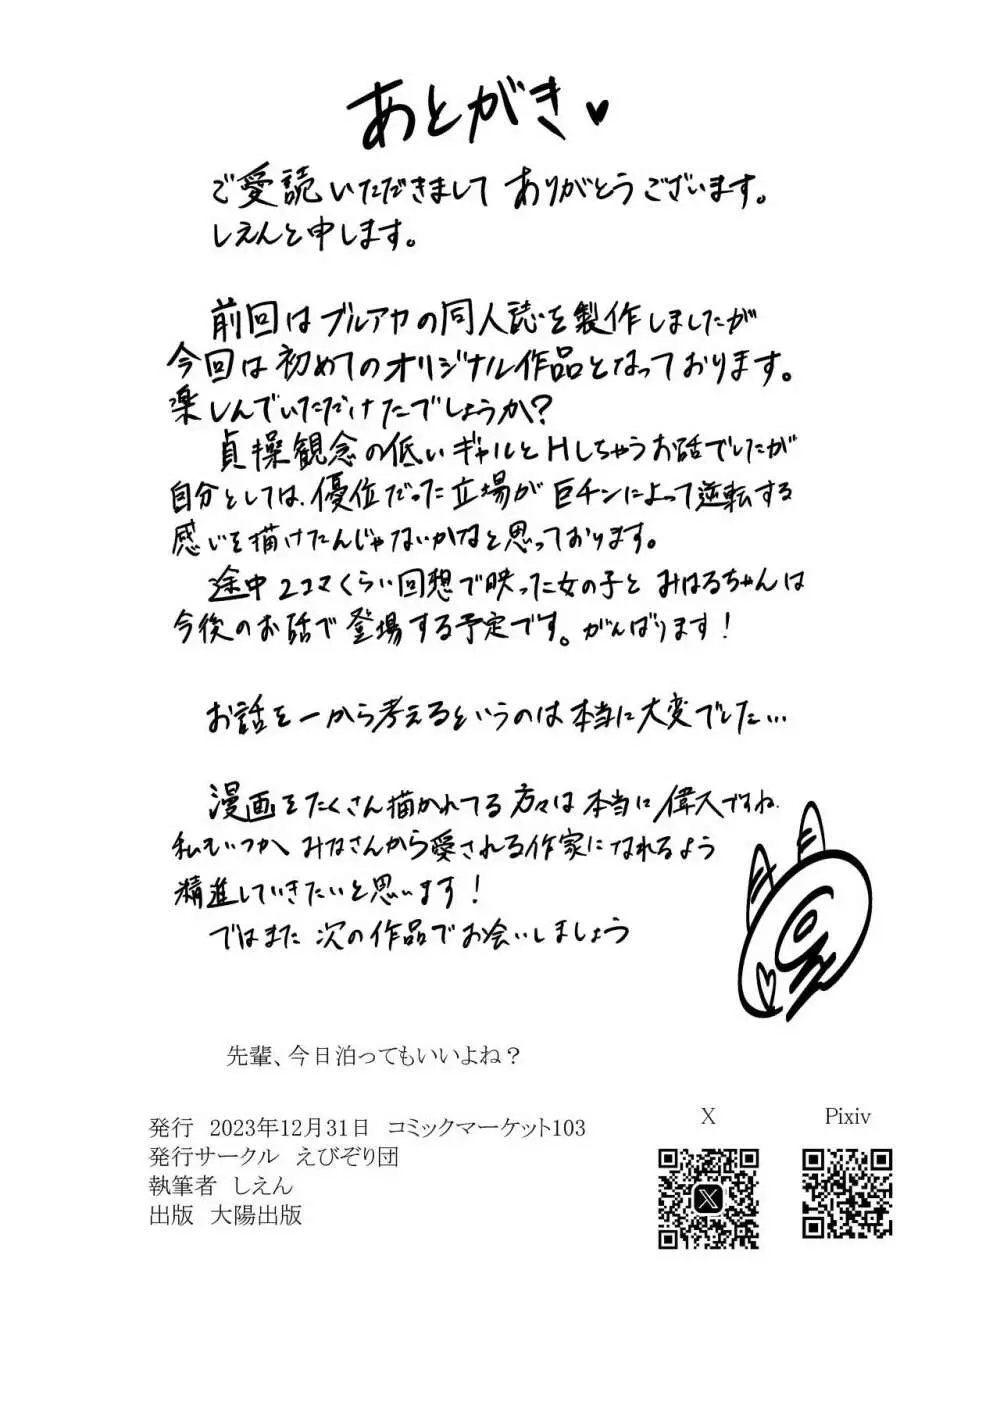 あとがき♥
ご愛読いただきましてありがとうございます。
しえんと申します。
前回はブルアカの同人誌を製作しましたが
今回は初めてのオリジナル作品となっております。
楽しんでいただけたでしょうか?
貞操観念の低いギャルとHしちゃうお話でしたが
自分としては、優位だった立場が巨チンによって逆転する
感じを描けたんじゃないかなと思っております。
途中2コマくらい回想で映った女の子と みはるちゃんは
今後のお話で登場する予定です。がんばります!
お話を一から考えるというのは本当に大変でした…
漫画をたくさん描かれてる方々は本当に偉大ですね.
私もいつか、みなさんから愛される作家になれるよう
精進していきたいと思います!
ではまた 次の作品でお会いしましょう
先輩、今日泊ってもいいよね？
発行　2023年12月31日　コミックマーケット103
発行サークル　えびぞり団
執筆者　しえん
出版　大陽出版
X
Pixiv